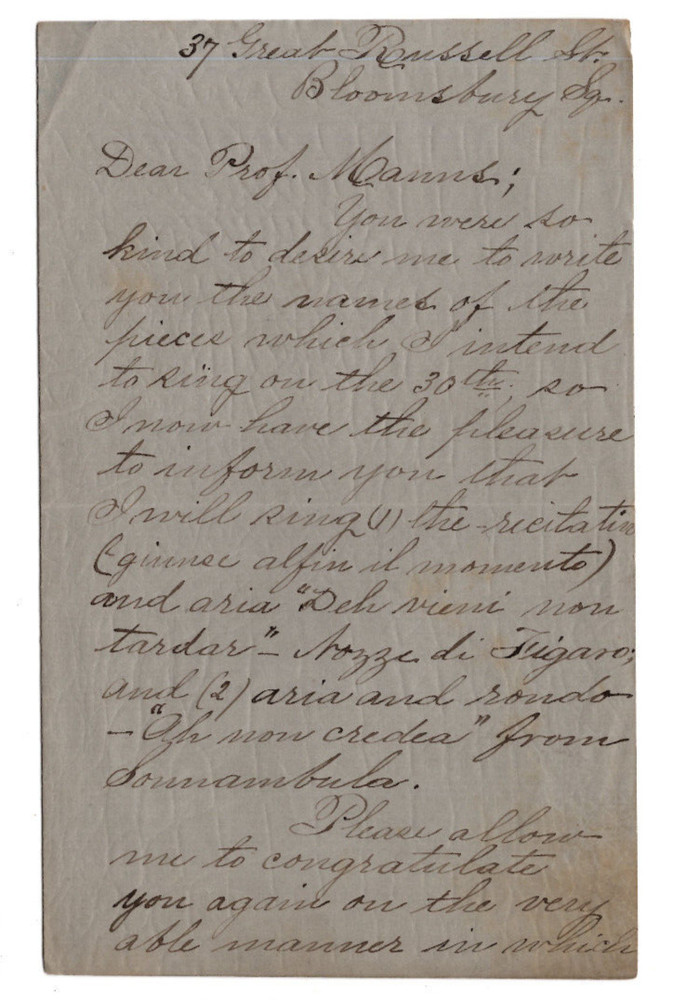 37 Great Russell St.
Bloomsbury Sq.
Dear Prof. Manns;
You were so
kind to desire me to write
you the names of the
pieces which I intend
to sing on the 30th, so
I now have the pleasure
to inform you that
I will sing (1) the recitative
(giunse alfin il momento)
and aria "Deh vieni non
tardar" – Nozze di Figaro;
and (2) aria and rondo
– "Ah non credea" from
Sonnambula.
Please allow
me to congratulate
you again on the very
able manner in which